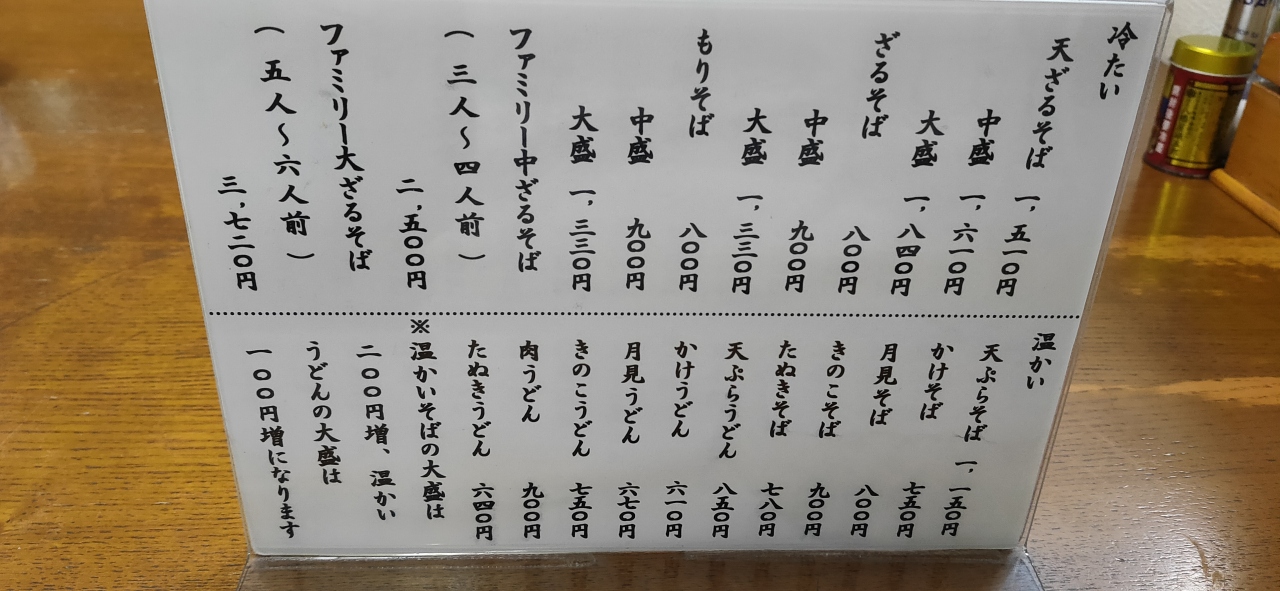 冷たい
天ざるそば 一,五一〇円
中盛 一,六一〇円
大盛 一,八四〇円
ざるそば 八〇〇円
中盛 九〇〇円
大盛 一,三三〇円
もりそば 八〇〇円
中盛 九〇〇円
大盛 一,三三〇円
ファミリー中ざるそば
(三人〜四人前)
二,五〇〇円
ファミリー大ざるそば
(五人〜六人前)
三,七二〇円
温かい
天ぷらそば 一,一五〇円
かけそば 七五〇円
月見そば 八〇〇円
きのこそば 九〇〇円
たぬきそば 七八〇円
天ぷらうどん 八五〇円
かけうどん 六一〇円
月見うどん 六七〇円
きのこうどん 七五〇円
肉うどん 九〇〇円
たぬきうどん 六四〇円
※温かいそばの大盛は
二〇〇円増、温かい
うどんの大盛は
一〇〇円増になります